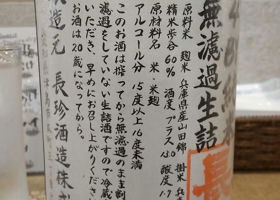 無濾過生詰
長
麹米 兵庫県産山田錦 掛米 兵
精米歩合60% 酒度プラス
原材料名 米・米麹
アルコール分 15度以上16度未満
このお酒は搾ってから無濾過のまま
濾過をしていない生詰ですので冷蔵
いただき、早めにお召し上がりくださ
お酒は20歳になってから。
造元 長珍酒造株